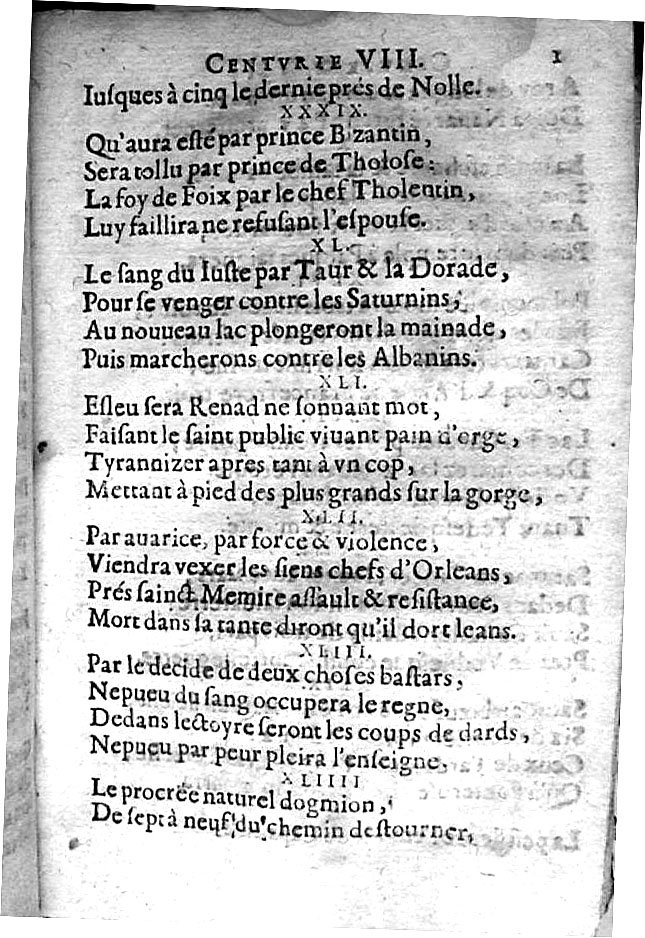 CENTVRIE VIII. 1
Iuſques à cinq le dernie prés de Nolle.
XXXIX.
Qu'aura eſté par prince Bizantin,
Sera tollu par prince de Tholoſe:
La foy de Foix par le chef Tholentin,
Luy faillira ne refuſant l'eſpouſe.
XL.
Le ſang du Iuſte par Taur & la Dorade,
Pour ſe venger contre les Saturnins,
Au nouueau lac plongeront la mainade,
Puis marcherons contre les Albanins.
XLI.
Eſleu ſera Renad ne ſonnant mot,
Faiſant le ſaint public viuant pain d'orge,
Tyrannizer apres tant à vn cop,
Mettant à pied des plus grands ſur la gorge,
XLII.
Par auarice, par force & violence,
Viendra vexer les ſiens chefs d'Orleans,
Prés ſainct Memire aſſault & reſiſtance,
Mort dans ſa tante diront qu'il dort leans.
XLIII.
Par le decide de deux choſes baſtars,
Nepueu du ſang occupera le regne,
Dedans lectoyre ſeront les coups de dards,
Nepueu par peur pleira l'enſeigne.
XLIIII
Le procrée naturel dogmion,
De ſept à neuf du chemin deſtourner,